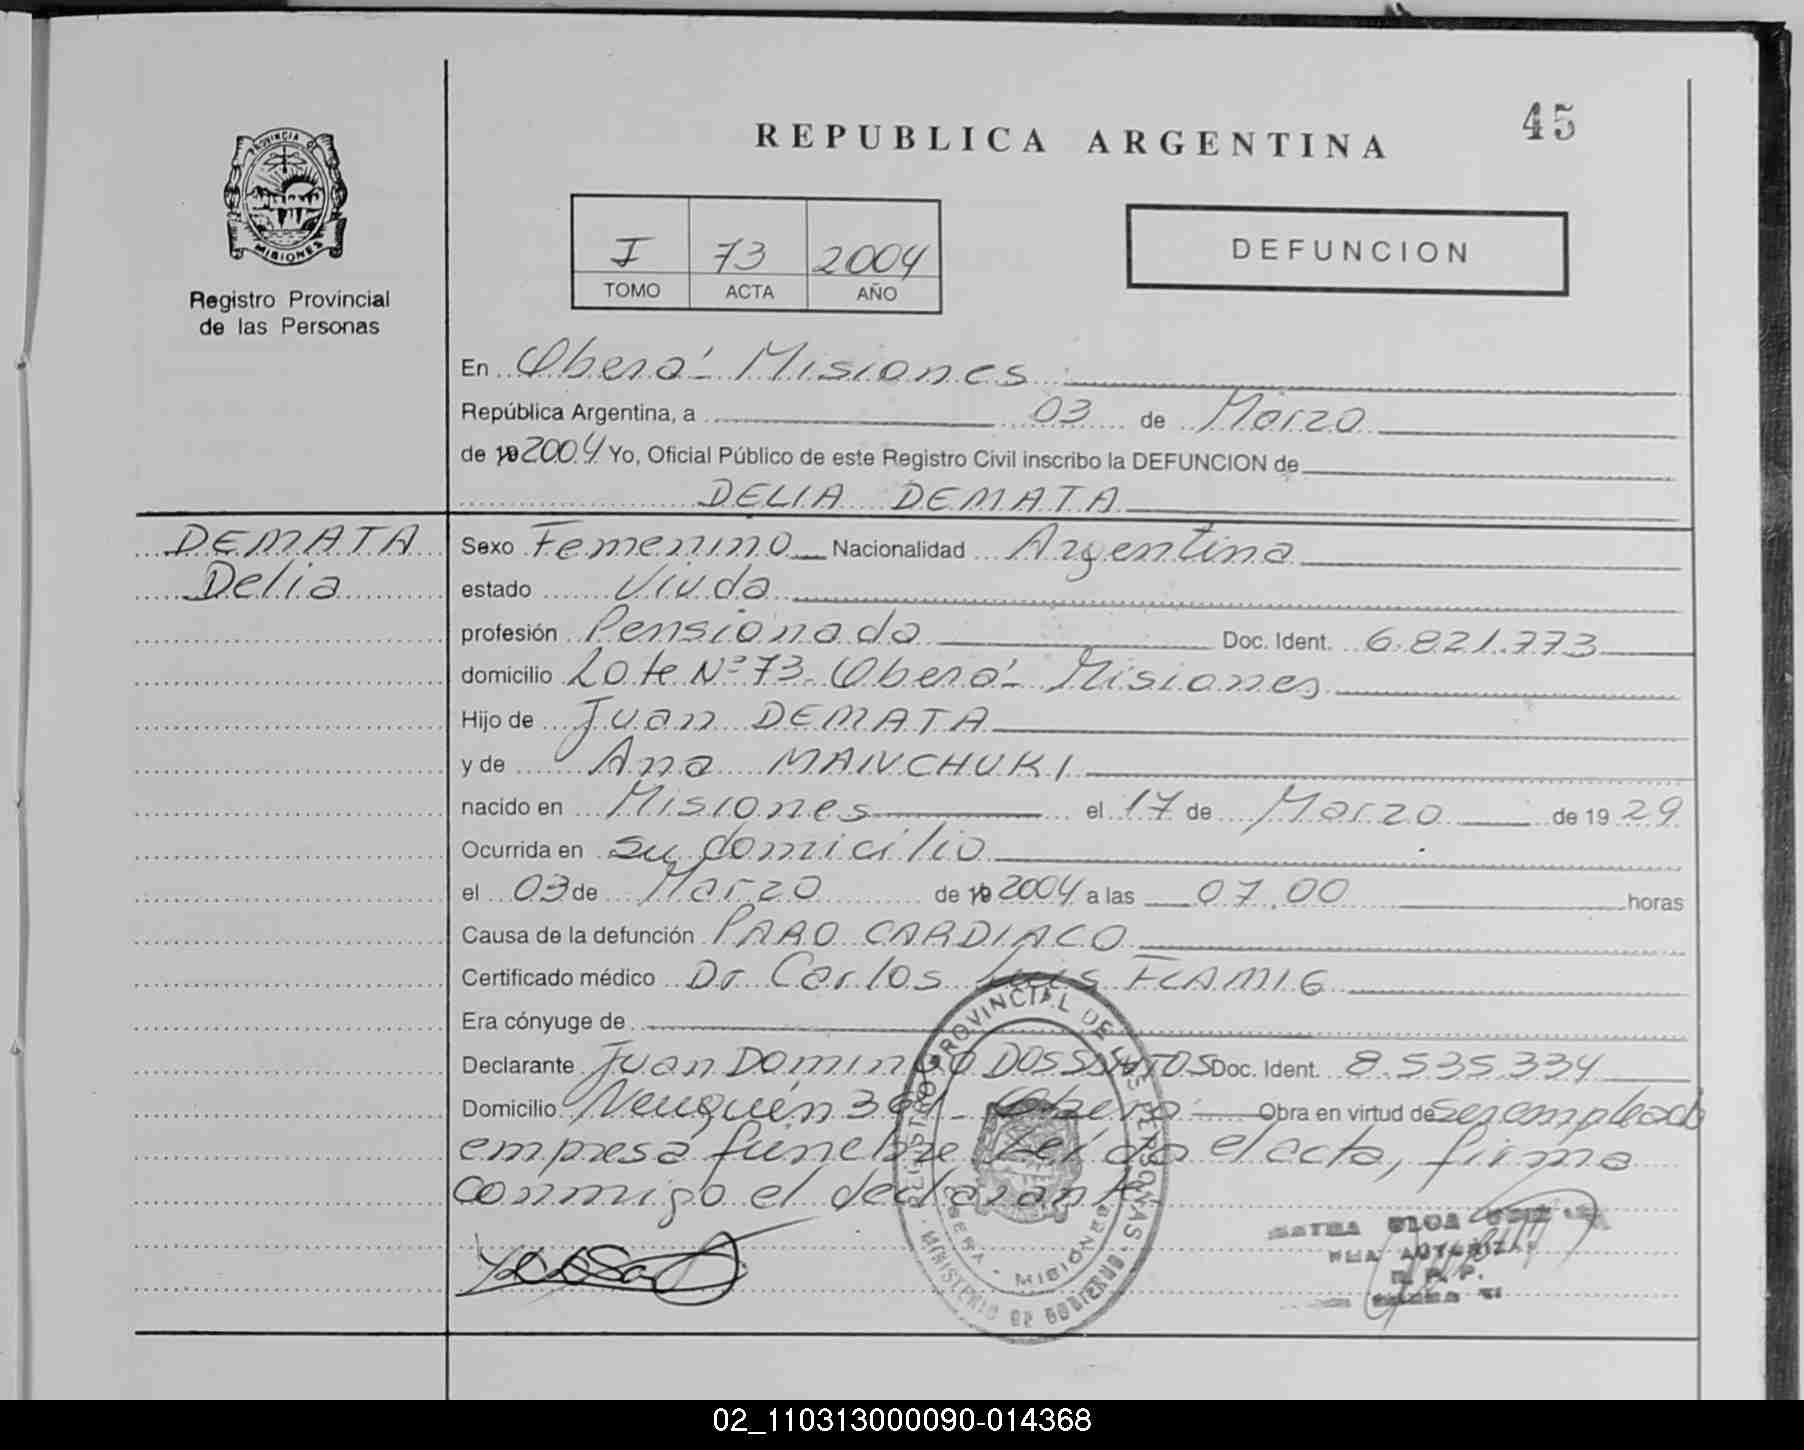 45
REPUBLICA ARGENTINA
PROVINCIA DE
MISIONES
Registro Provincial
de las Personas
I 73 2004
TOMO ACTA AÑO
DEFUNCION
En Oberá - Misiones
República Argentina, a 03 de Marzo
de 19 2004 Yo, Oficial Público de este Registro Civil inscribo la DEFUNCION de
DELIA DEMATA
DEMATA
Delia
Sexo Femenino Nacionalidad Argentina
estado Viuda
profesión Pensionada Doc. Ident. 6.821.773
domicilio Lote Nº 73 - Oberá - Misiones
Hijo de Juan DEMATA
y de Ana MANCHUKI
nacido en Misiones el 17 de Marzo de 19 29
Ocurrida en su domicilio
el 03 de Marzo de 19 2004 a las 07.00 horas
Causa de la defunción PARO CARDIACO
Certificado médico Dr. Carlos Luis FLAMIG
Era cónyuge de
Declarante Juan DOMINGO DOS SANTOS Doc. Ident. 8.535.334
Domicilio Neuquén - Oberá Obra en virtud de ser empleado
empresa fúnebre. Leída el acta, firma
conmigo el declarante
REGISTRO PROVINCIAL DE LAS PERSONAS
MINISTERIO DE GOBIERNO
OBERA - MISIONES
R. P. P.
02_110313000090-014368